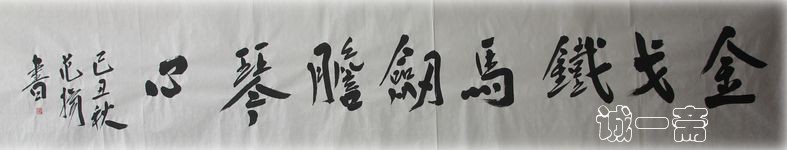 金戈鐵馬劍膽琴心
己丑秋
范楊
書
诚一斋